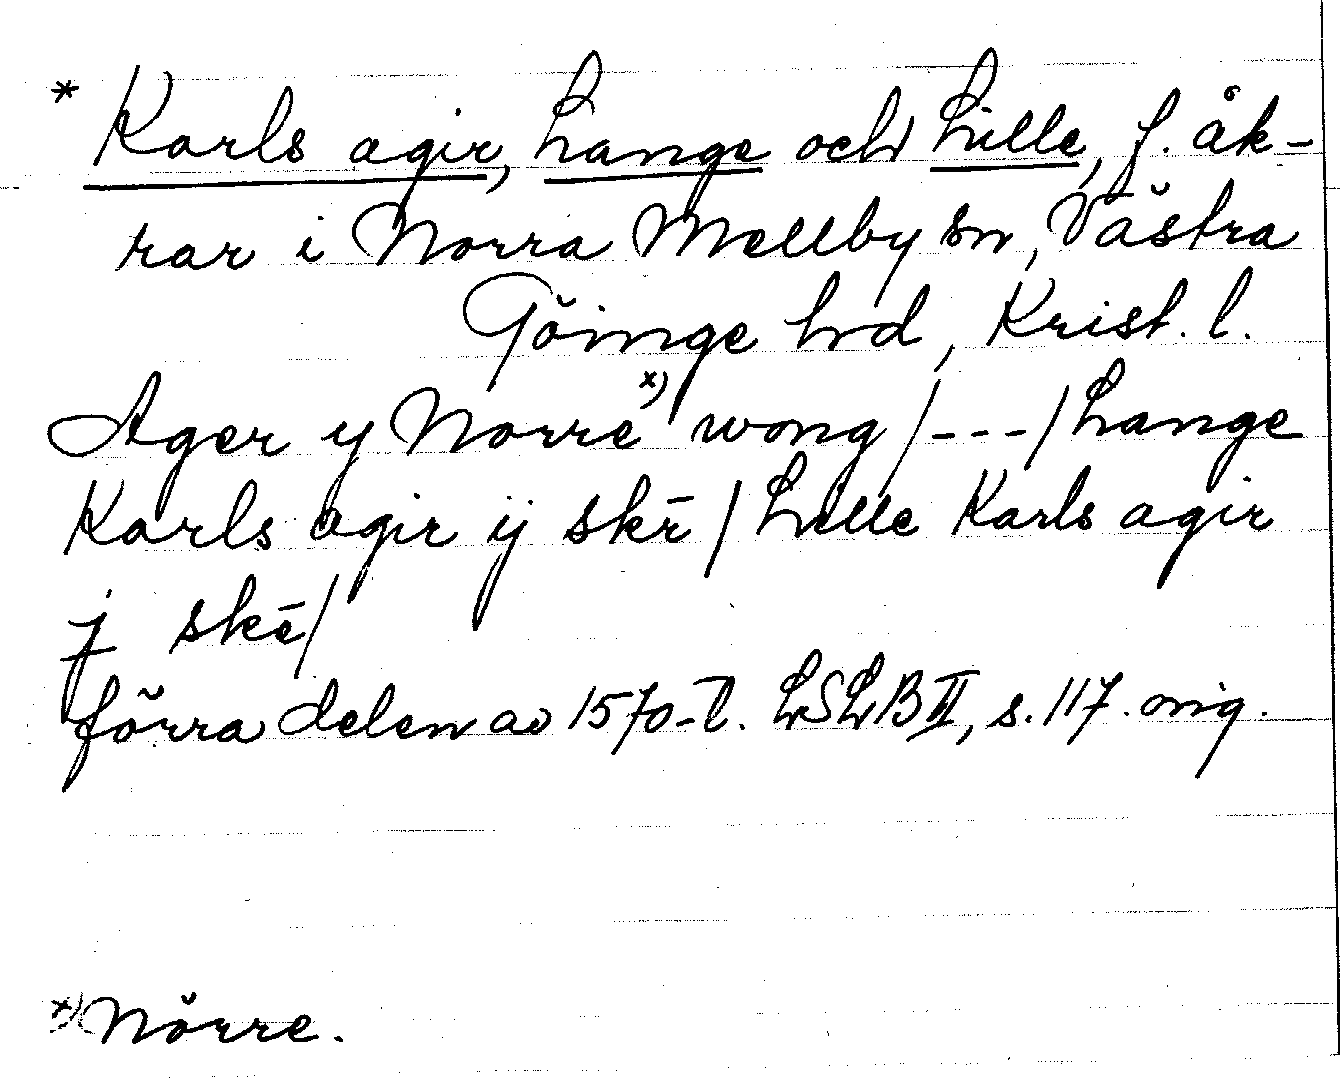 * Karls agir, Lange och Lille, f. åk-
rar i Norra Mellby sn, Västra
Göinge hrd, Krist. l.
Ager y Norre x) wong /---/ Lange
Karls agir ij skē / Lille Karls agir
j skē/
förra delen av 1570-t. LSLB II, s. 117. orig.
x) Nörre.